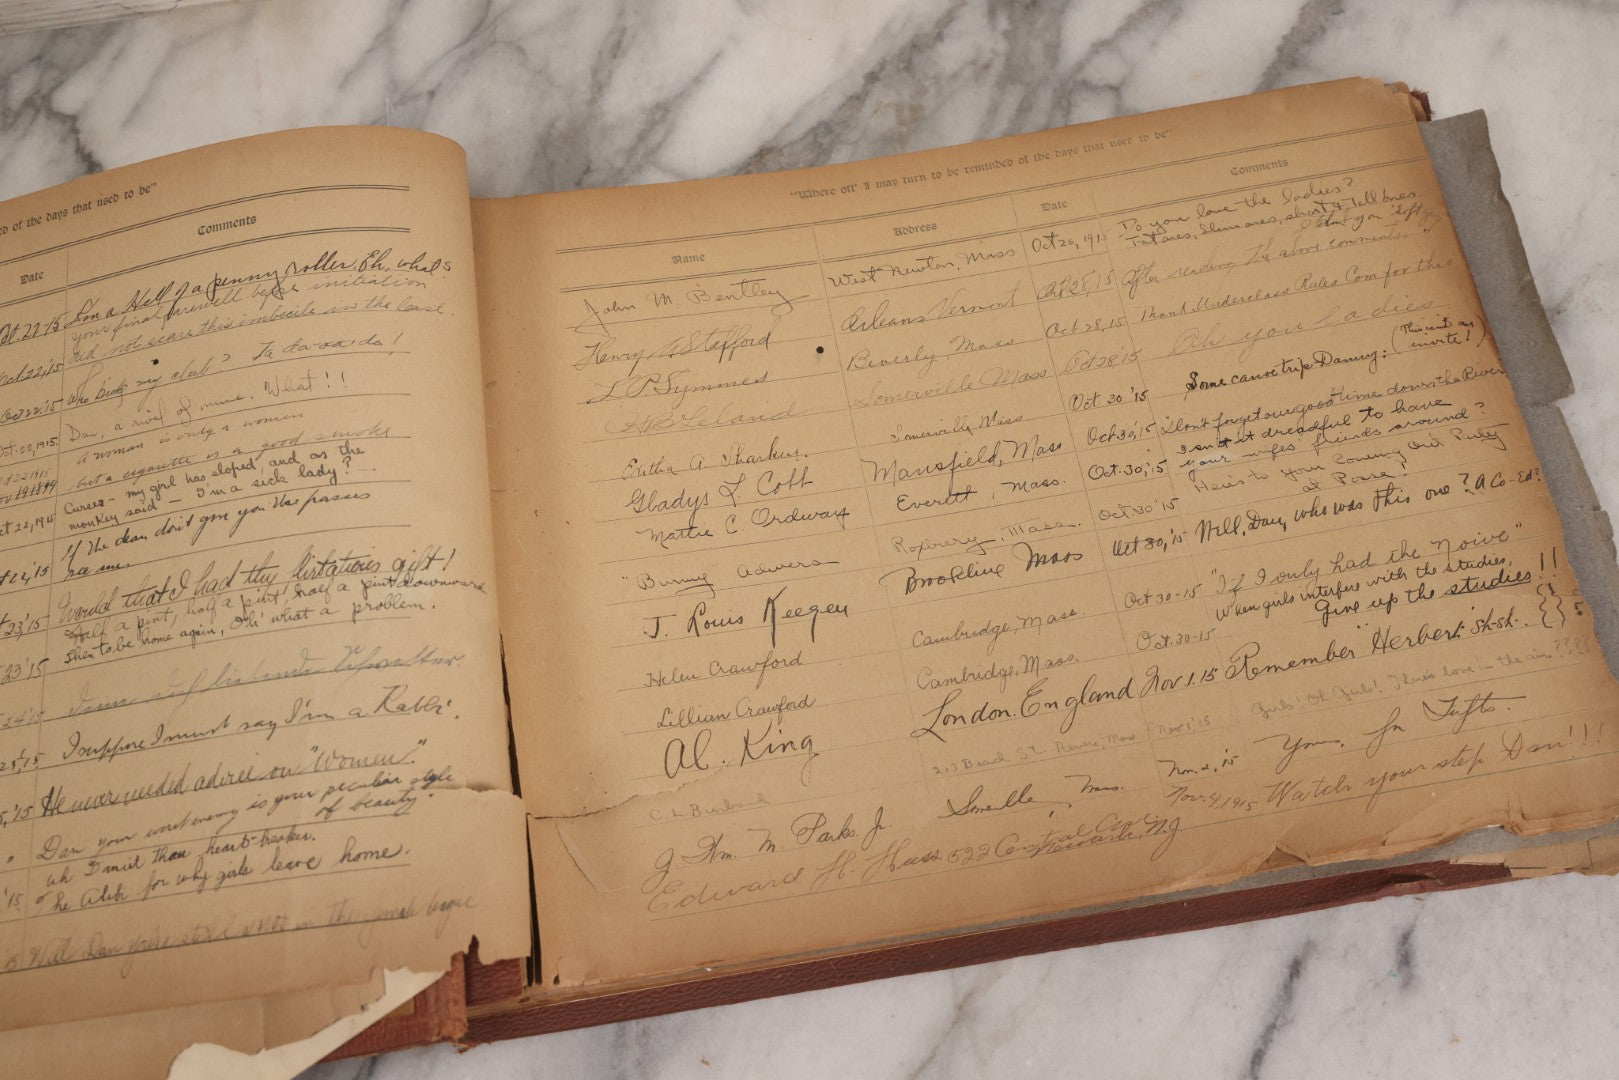 ed of the days that used to be"
Date
Comments
Oct. 22 '15 I'm a Hell of a penny roller. Eh, what's
your final farewell before initiation
did not scare this imbecile in the least.
Oct 22, '15 who my club? Ta ta-ra da!
Oct 22 '15 What!!
Oct. 22, 1915. Dan, a rival of mine.
a woman is only a woman
but a cigarette is a good smoke
Oct 22, 1915 Curses - my girl has eloped, and as the
monkey said - I'm a sick lady?
If the dean don't give you the passes
see me.
Would that I had thy flirtatious gift!
23, '15 Half a pint, half a pint, half a pint downward
then to be home again, Oh! what a problem.
23 '15
24 '15
25, '15 I suppose I must say I'm a Rabbi.
5, '15 He never needed advice on "Women".
" Dan your worst enemy is your peculiar style
of beauty.
'15. ah Daniel thou heart-breaker.
The Alibi for why girls leave home.
Well Dan you're still in the female league
"Where oft' I may turn to be reminded of the days that used to be"
Name
Address
Date
Comments
John M. Bentley West Newton, Mass Oct 26, 1915 Do you love the ladies?
Fat ones, slim ones, short & tall ones
Henry W Stafford Orleans Vermont Oct 28, 15 After reading the above comments,
L P Symmes Beverly, Mass Oct 28, 15 Thank Underclass Rules Com for this
Leland Somerville Mass Oct 28 '15 Oh you ladies
Editha A Sharkey. Somerville Mass Oct 30 '15 Some canoe trip Danny: (This isn't an
invite!)
Gladys L. Cobb Mansfield, Mass Oct 30, '15 Don't forget our good time down the River
Mattie C Ordway Everett, Mass. Oct. 30, '15 Isn't it dreadful to have
your wifes' friends around?
"Bunny" Roxbury, Mass. Oct 30 '15 Here's to your Coming Out Party
at Posse!
J. Louis Keegen Brookline Mass Oct 30, '15 Well, Dan, who was this one? A Co-Ed?
Helen Crawford Cambridge, Mass. Oct 30-15 "If I only had the noive"
Lillian Crawford Cambridge, Mass. Oct. 30-15 When girls interfere with the studies,
Give up the studies!!
Al. King London. England Nov 1. 15 "Remember" Herbert sh-sh.
C. L. Burbank 213 Beach St. Revere, Mass Nov 1, '15 Girls! Oh Girls! There's love in the air????
Wm. M. Parks Jr. Somerville, Mass. Nov. 2, '15 Yours, for Tufts.
Edward H. Huss 522 Central Ave. Nov. 4, 1915 Watch your step Dan!!!
Newark, N.J